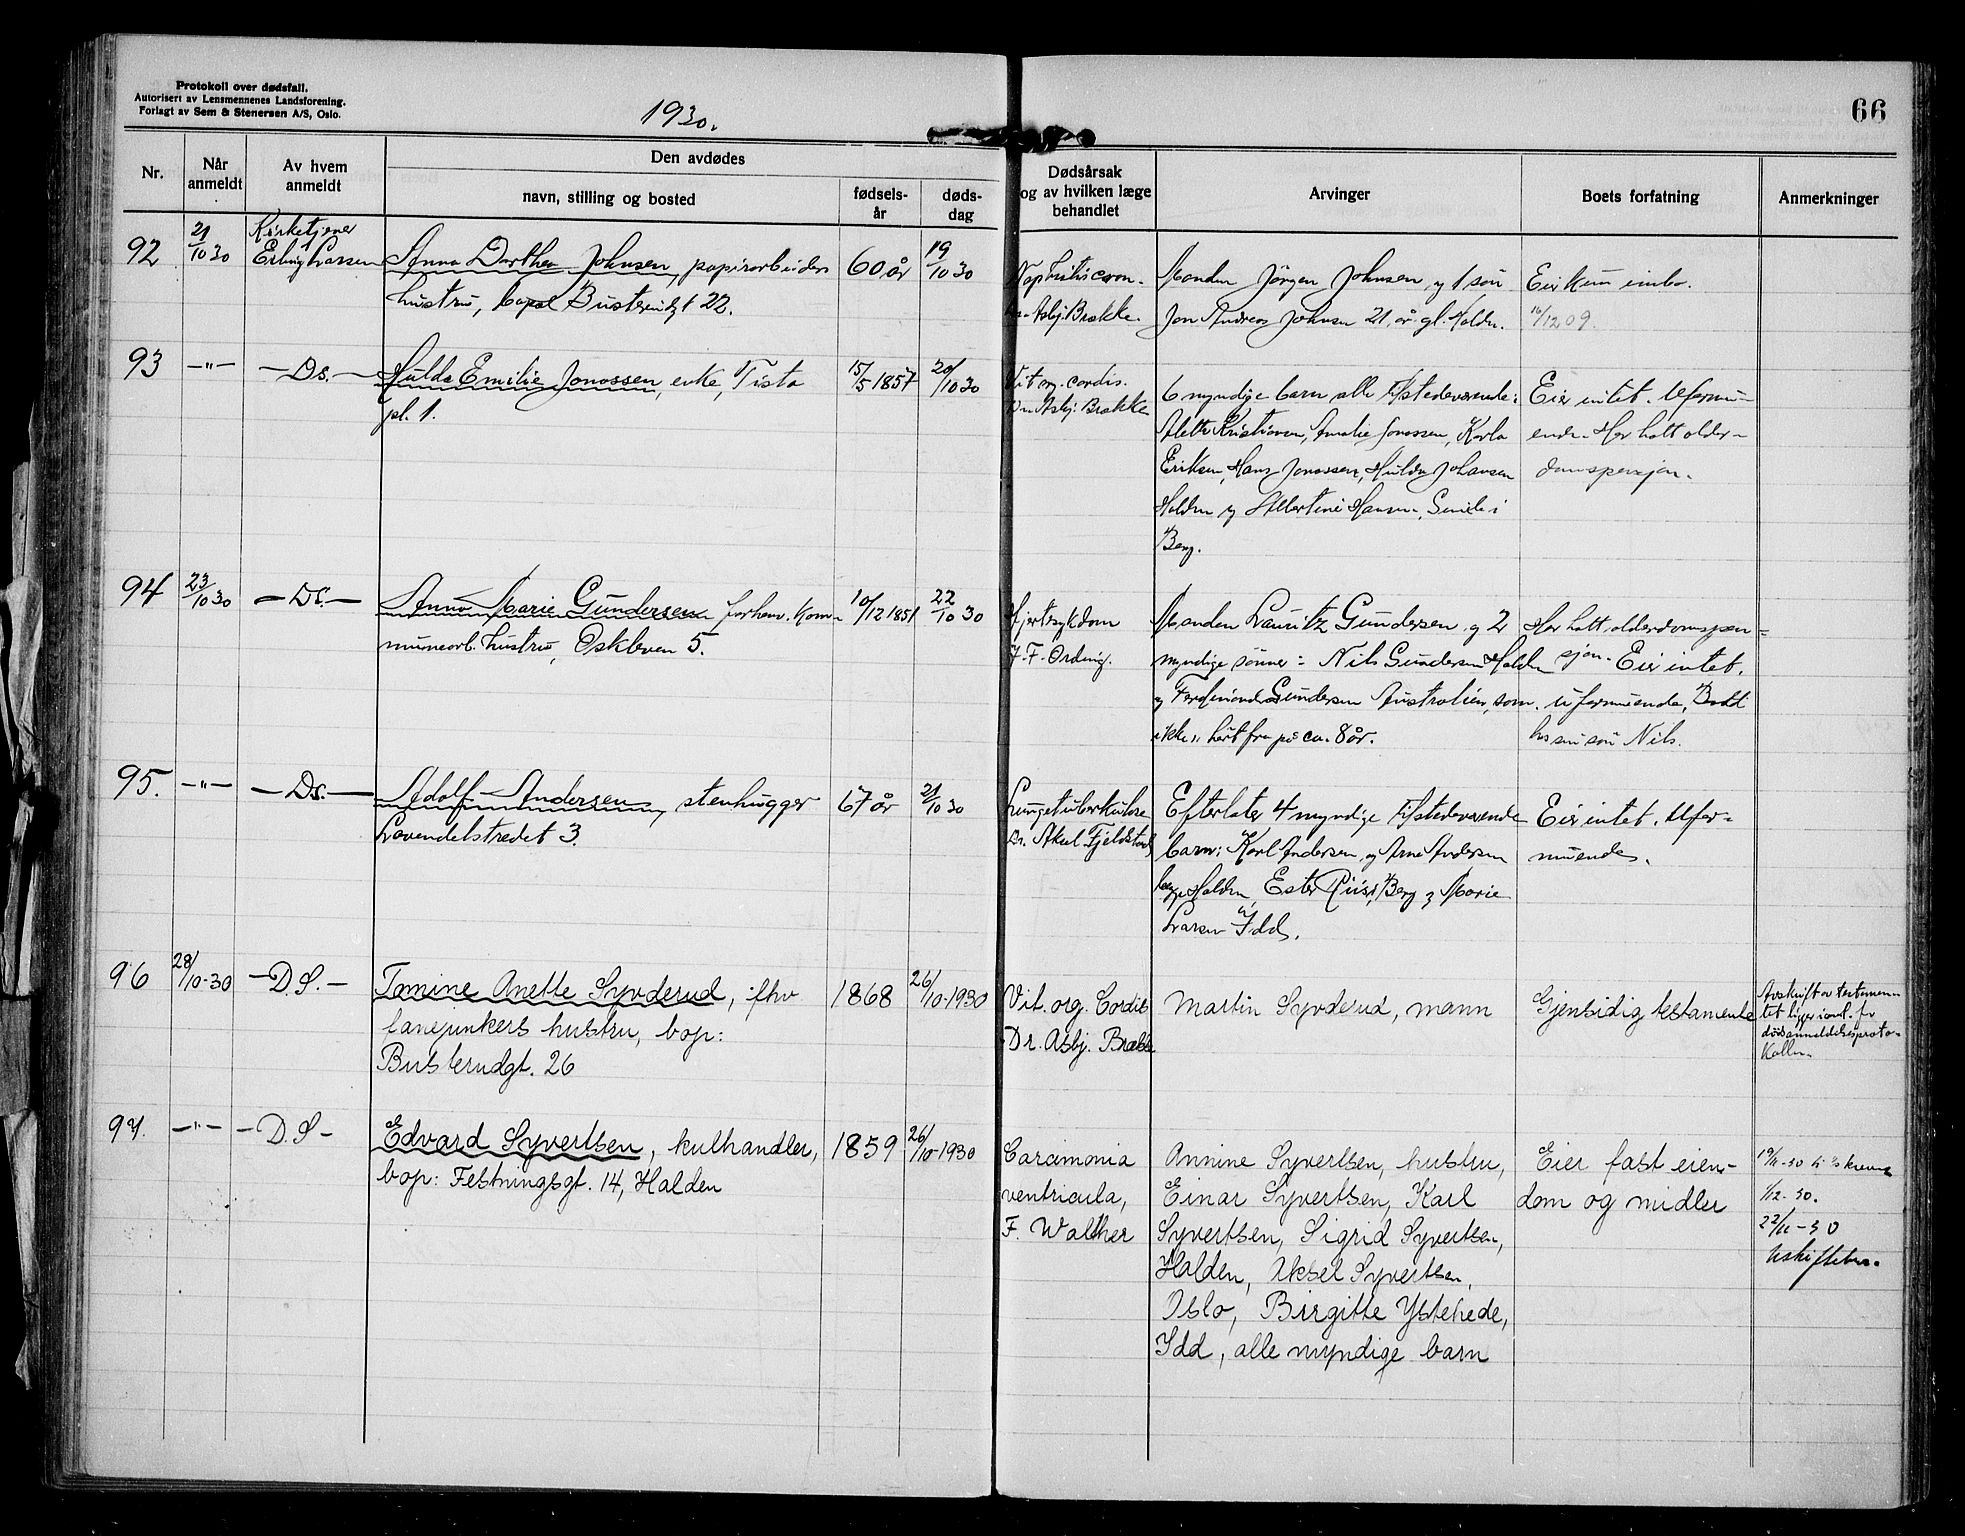 Protokoll over dødsfall.
Autorisert av Lensmennenes Landsforening.
Forlagt av Sem & Stenersen A/S, Oslo.
1930.
66
Nr.
Når anmeldt
Av hvem anmeldt
Den avdødes
navn, stilling og bosted
fødsels-
år
døds-
dag
Dødsårsak
og av hvilken læge
behandlet
Arvinger
Boets forfatning
Anmerkninger
92
21/10 30
Kirketjener
Erling Larsen
Anna Dorthea Johnsen, papirarbeiders
hustru, bopæl Busterudgt 22.
60 år
19/10 30
Asbj. Brække.
Manden Jörgen Johnsen, og 1 sön
Jon Andreas Johnsen 21 år gl. Halden.
Eir kun innbo.
16/12 09.
93
—"—
—Ds.—
Hulda Emilie Jonassen, enke, Tista
pl. 1.
15/5 1857
20/10 30
Vit. org. cordis.
Dr. Asbj. Brække
6 myndige barn alle tilstedeværende:
Alette Kristiansen, Amalie Jonassen, Karla
Eriksen, Hans Jonassen, Hulda Johansen
Halden og Albertine Hansen, i
Berg.
Eier intet. Uformu-
ende. Har hatt alder-
domspensjon.
94
23/10 30
—Ds.—
Anna Marie Gundersen forhenv. kom-
munearb. hustru, Oskleven 5.
10/12 1851
22/10 30
Hjertesykdom
J. F. Ording.
Manden Lauritz Gundersen og 2
myndige sönner: Nils Gundersen Halden
og Ferdinand Gundersen Australien, som
ikke hört fra på ca. 8 år.
Har hatt alderdomspen-
sjon. Eier intet.
uformuende. Bodd
hos sin sön Nils.
95.
—"—
—Ds.—
Adolf Andersen, stenhugger
Lavendelstredet 3.
67 år
21/10 30
Lungetuberkulose
Dr. Aksel Fjeldstad
Efterlater 4 myndige tilstedeværende
barn: Karl Andersen, og Arne Andersen
begge Halden, Ester Riis, Berg og Marie
Larsen i Idd.
Eier intet. Ufor-
muende.
96
28/10-30
—D.S.—
Tomine Anette Syvderud, fhv
lanejunkers hustru, bop:
Busterudgt. 26
1868
26/10-1930
Vit. org. Cordis
Dr. Asbj. Brække
Martin Syvderud, mann
Gjensidig testamente
Avskrift av testamen-
tet ligger foran for
dödsanmeldelsesproto-
kollen.
97.
—"—
—D.S—
Edvard Syvertsen, kulhandler,
bop: Festningsgt. 14, Halden
1859
26/10-1930
Carcimonia
ventricula,
F. Walther
Annine Syvertsen, hustru,
Einar Syvertsen, Karl
Syvertsen, Sigrid Syvertsen,
Halden, Aksel Syvertsen,
Oslo, Birgitte Ystehede,
Idd, alle myndige barn
Eier fast eien-
dom og midler
19/11-30
1/12-30.
22/11-30
Uskiftebev.